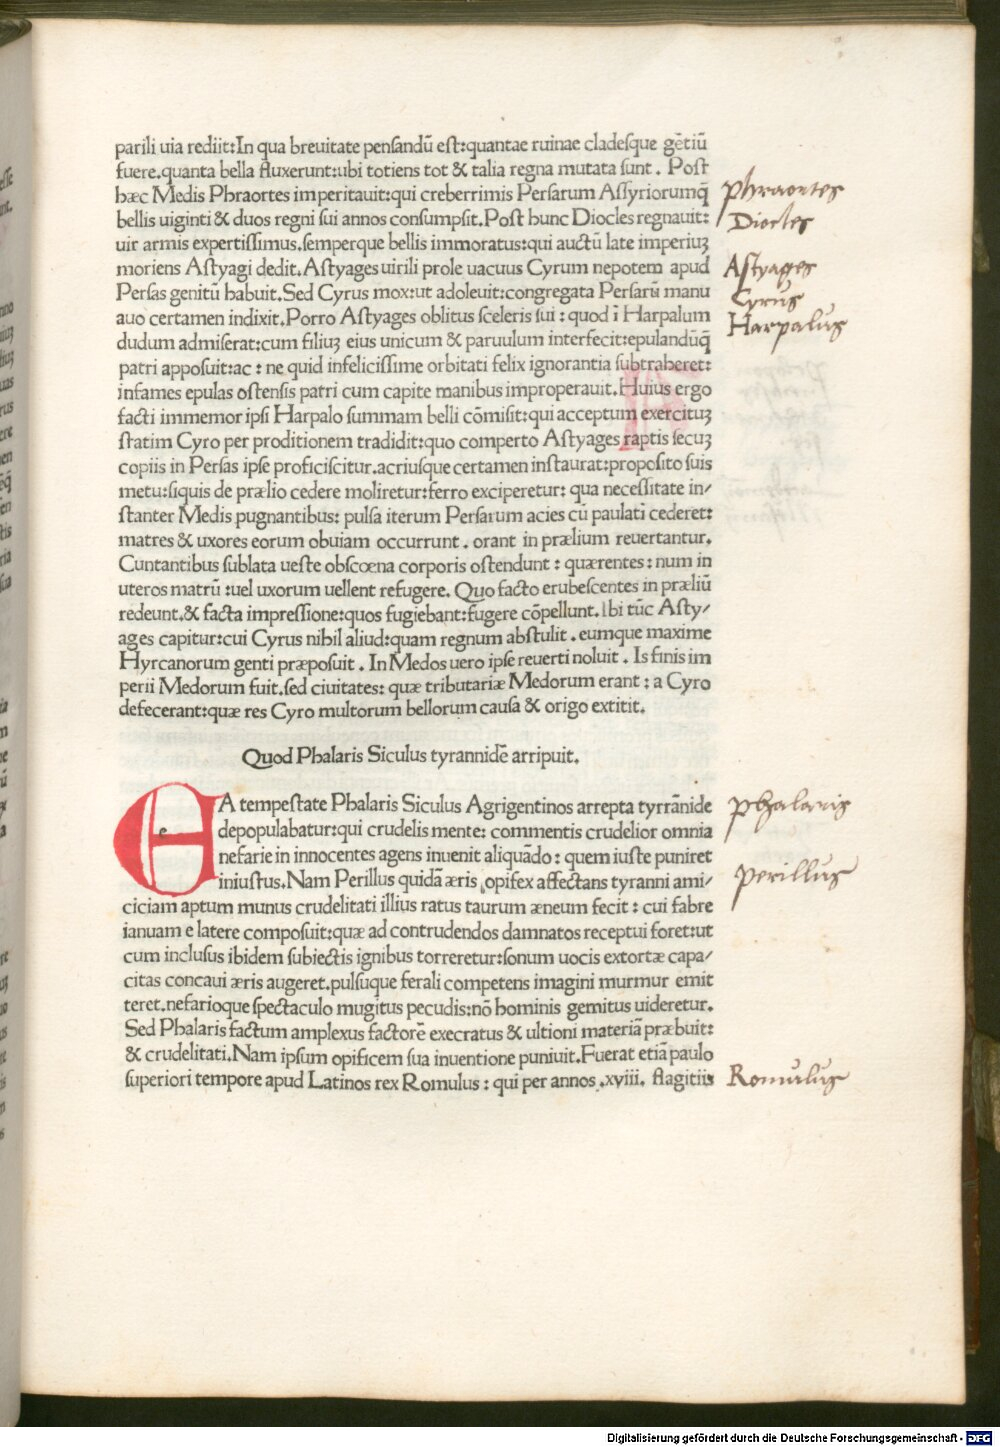 parili uia rediit:In qua breuitate pensandū est:quantae ruinae cladesque gētiū
fuere.quanta bella fluxerunt:ubi totiens tot & talia regna mutata sunt . Post
hæc Medis Phraortes imperitauit:qui creberrimis Persarum Assyriorumq̄
bellis uiginti & duos regni sui annos consumpsit.Post hunc Diocles regnauit:
uir armis expertissimus.semperque bellis immoratus:qui auctū late imperiuꝫ
moriens Astyagi dedit.Astyages uirili prole uacuus Cyrum nepotem apud
Persas genitū habuit.Sed Cyrus mox:ut adoleuit:congregata Persarū manu
auo certamen indixit.Porro Astyages oblitus sceleris sui : quod ī Harpalum
dudum admiserat:cum filiuꝫ eius unicum & paruulum interfecit:epulandūq̄
patri apposuit:ac : ne quid infelicissime orbitati felix ignorantia subtraheret:
infames epulas ostensis patri cum capite manibus improperauit.Huius ergo
facti immemor ipsi Harpalo summam belli cōmisit:qui acceptum exercituꝫ
statim Cyro per proditionem tradidit:quo comperto Astyages raptis secuꝫ
copiis in Persas ipse proficiscitur.acriusque certamen instaurat:proposito suis
metu:siquis de prælio cedere moliretur:ferro exciperetur: qua necessitate in/
stanter Medis pugnantibus: pulsa iterum Persarum acies cū paulati cederet:
matres & uxores eorum obuiam occurrunt . orant in prælium reuertantur.
Cuntantibus sublata ueste obscœna corporis ostendunt : quærentes : num in
uteros matrū :uel uxorum uellent refugere. Quo facto erubescentes in præliū
redeunt.& facta impressione:quos fugiebant:fugere cōpellunt.Ibi tūc Asty/
ages capitur:cui Cyrus nihil aliud:quam regnum abstulit . eumque maxime
Hyrcanorum genti præposuit . In Medos uero ipse reuerti noluit . Is finis im
perii Medorum fuit.sed ciuitates: quæ tributariæ Medorum erant : a Cyro
defecerant:quæ res Cyro multorum bellorum causa & origo extitit.
Quod Phalaris Siculus tyrannidē arripuit.
EA tempestate Phalaris Siculus Agrigentinos arrepta tyrrānide
depopulabatur:qui crudelis mente: commentis crudelior omnia
nefarie in innocentes agens inuenit aliquādo : quem iuste puniret
iniustus.Nam Perillus quidā æris opifex affectans tyranni ami/
ciciam aptum munus crudelitati illius ratus taurum æneum fecit : cui fabre
ianuam e latere composuit:quæ ad contrudendos damnatos receptui foret:ut
cum inclusus ibidem subiectis ignibus torreretur:sonum uocis extortæ capa/
citas concaui æris augeret.pulsuque ferali competens imagini murmur emit
teret.nefarioque spectaculo mugitus pecudis:nō hominis gemitus uideretur.
Sed Phalaris factum amplexus factorē execratus & ultioni materiā præbuit:
& crudelitati.Nam ipsum opificem sua inuentione puniuit.Fuerat etiā paulo
superiori tempore apud Latinos rex Romulus : qui per annos .xviii. flagitiis
Phraortes
Diocles
Astyages
Cyrus
Harpalus
Phalaris
Perillus
Romulus
Digitalisierung gefördert durch die Deutsche Forschungsgemeinschaft - DFG